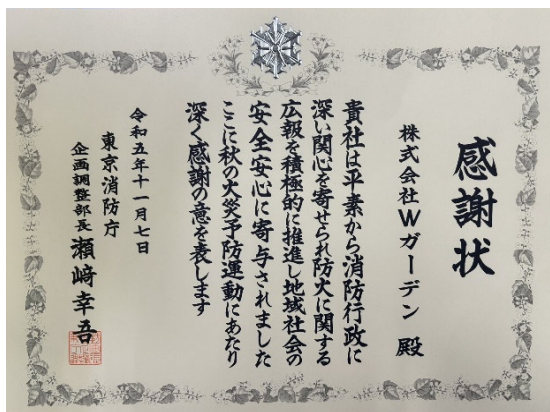 感謝状
株式会社Wガーデン 殿
貴社は平素から消防行政に
深い関心を寄せられ防火に関する
広報を積極的に推進し地域社会の
安全安心に寄与されました
ここに秋の火災予防運動にあたり
深く感謝の意を表します
令和五年十一月七日
東京消防庁
企画調整部長 瀬﨑幸吾